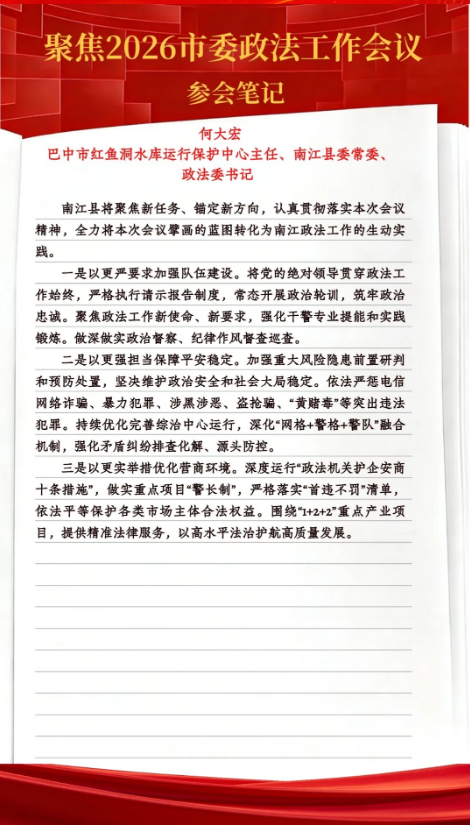 聚焦2026市委政法工作会议
参会笔记
何大宏
巴中市红鱼洞水库运行保护中心主任、南江县委常委、
政法委书记
南江县将聚焦新任务、锚定新方向，认真贯彻落实本次会议
精神，全力将本次会议擘画的蓝图转化为南江政法工作的生动实
践。
一是以更严要求加强队伍建设。将党的绝对领导贯穿政法工
作始终，严格执行请示报告制度，常态开展政治轮训，筑牢政治
忠诚。聚焦政法工作新使命、新要求，强化干警专业提能和实践
锻炼。做深做实政治督察、纪律作风督查巡查。
二是以更强担当保障平安稳定。加强重大风险隐患前置研判
和预防处置，坚决维护政治安全和社会大局稳定。依法严惩电信
网络诈骗、暴力犯罪、涉黑涉恶、盗抢骗、“黄赌毒”等突出违法
犯罪。持续优化完善综治中心运行，深化“网格+警格+警队”融合
机制，强化矛盾纠纷排查化解、源头防控。
三是以更实举措优化营商环境。深度运行“政法机关护企安商
十条措施”，做实重点项目“警长制”，严格落实“首违不罚”清单，
依法平等保护各类市场主体合法权益。围绕“1+2+2”重点产业项
目，提供精准法律服务，以高水平法治护航高质量发展。